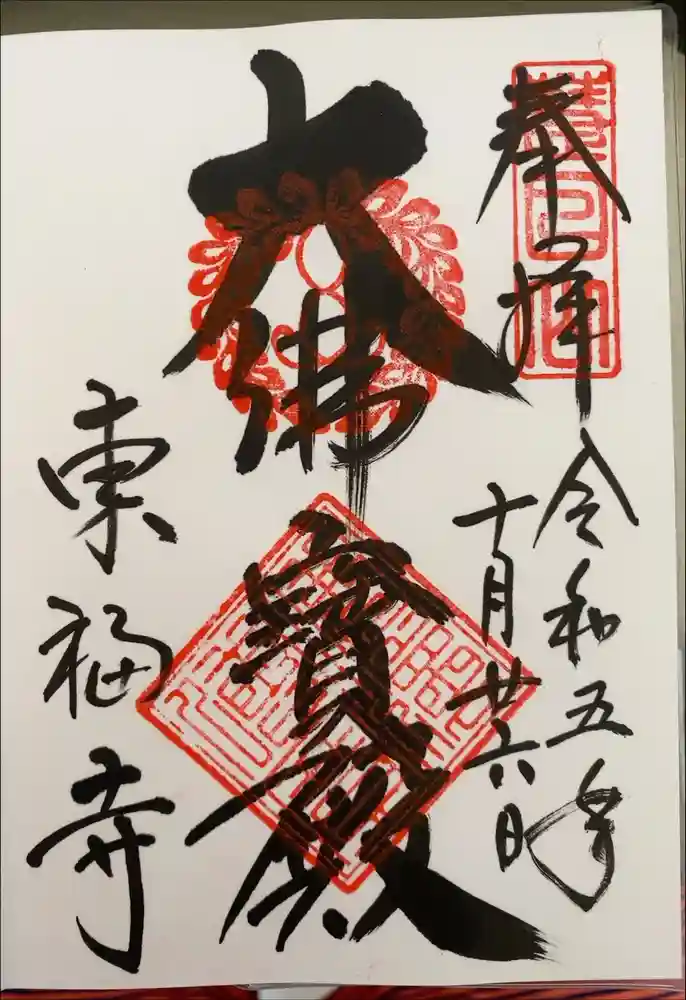 奉拝
令和五年
十月廿六日
大佛寳殿
東福寺